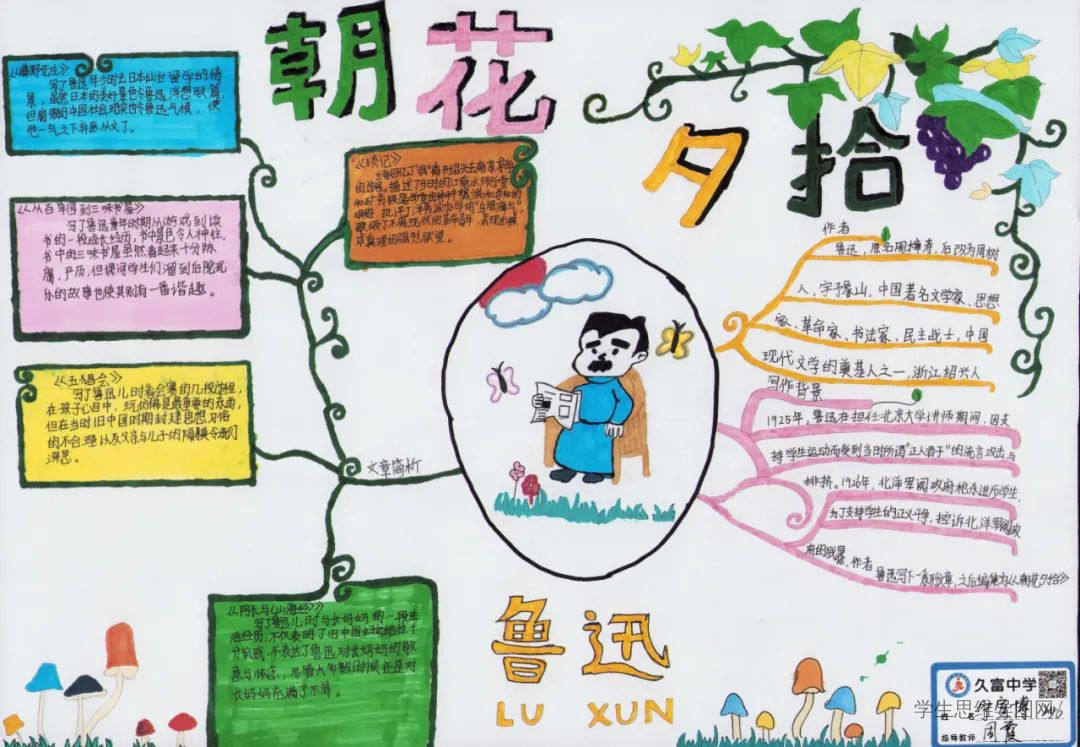 朝花夕拾
《藤野先生》
写了鲁迅年少时去日本仙台留学的情
景，虽然日本的美好景色令鲁迅浮想联篇，
但腐败的中国社会现实也令鲁迅气愤，使
他一气之下弃医从文了。
《琐记》
批评了洋务派办学的"乌烟瘴气"，
求真理的强烈欲望。
《从百草园到三味书屋》
写了鲁迅童年时期从游戏到读
书的一段成长经历，书中景色令人神往。
书中的三味书屋虽然看起来十分陈
腐，严厉，但课间学生们溜到后院玩
乐的故事也使其别有一番谐趣。
《五猖会》
写了鲁迅儿时看会赛的几段过程，
在孩子心目中，玩仿佛是最重要的东西，
但在当时旧中国时期封建思想习俗
的不合理以及父亲与儿子的隔膜令我们
深思。
《阿长与《山海经》》
写了鲁迅儿时与长妈妈的一段生
活经历，不仅表明了旧中国妇女地位十
分低贱，不表达了鲁迅对长妈妈的敬
意与怀念，尽管大多数旧时候还是对
长妈妈充满了不屑。
文章简析
作者
鲁迅，原名周樟寿，后改为周树
人，字予豫山，中国著名文学家、思想
家、革命家、书法家、民主战士，中国
现代文学的奠基人之一，浙江绍兴人
写作背景
1925年，鲁迅在担任北京大学讲师期间，因支
持学生运动而受到当时所谓"正人君子"的流言攻击与
排挤。1926年，北洋军阀政府枪杀进步学生，
为了支持学生的正义斗争，控诉北洋军阀政
府的残暴，作者
鲁迅写下一系列文章，之后编集为《朝花夕拾》
鲁迅
LU XUN
久富中学
姓名
指导教师 周霞